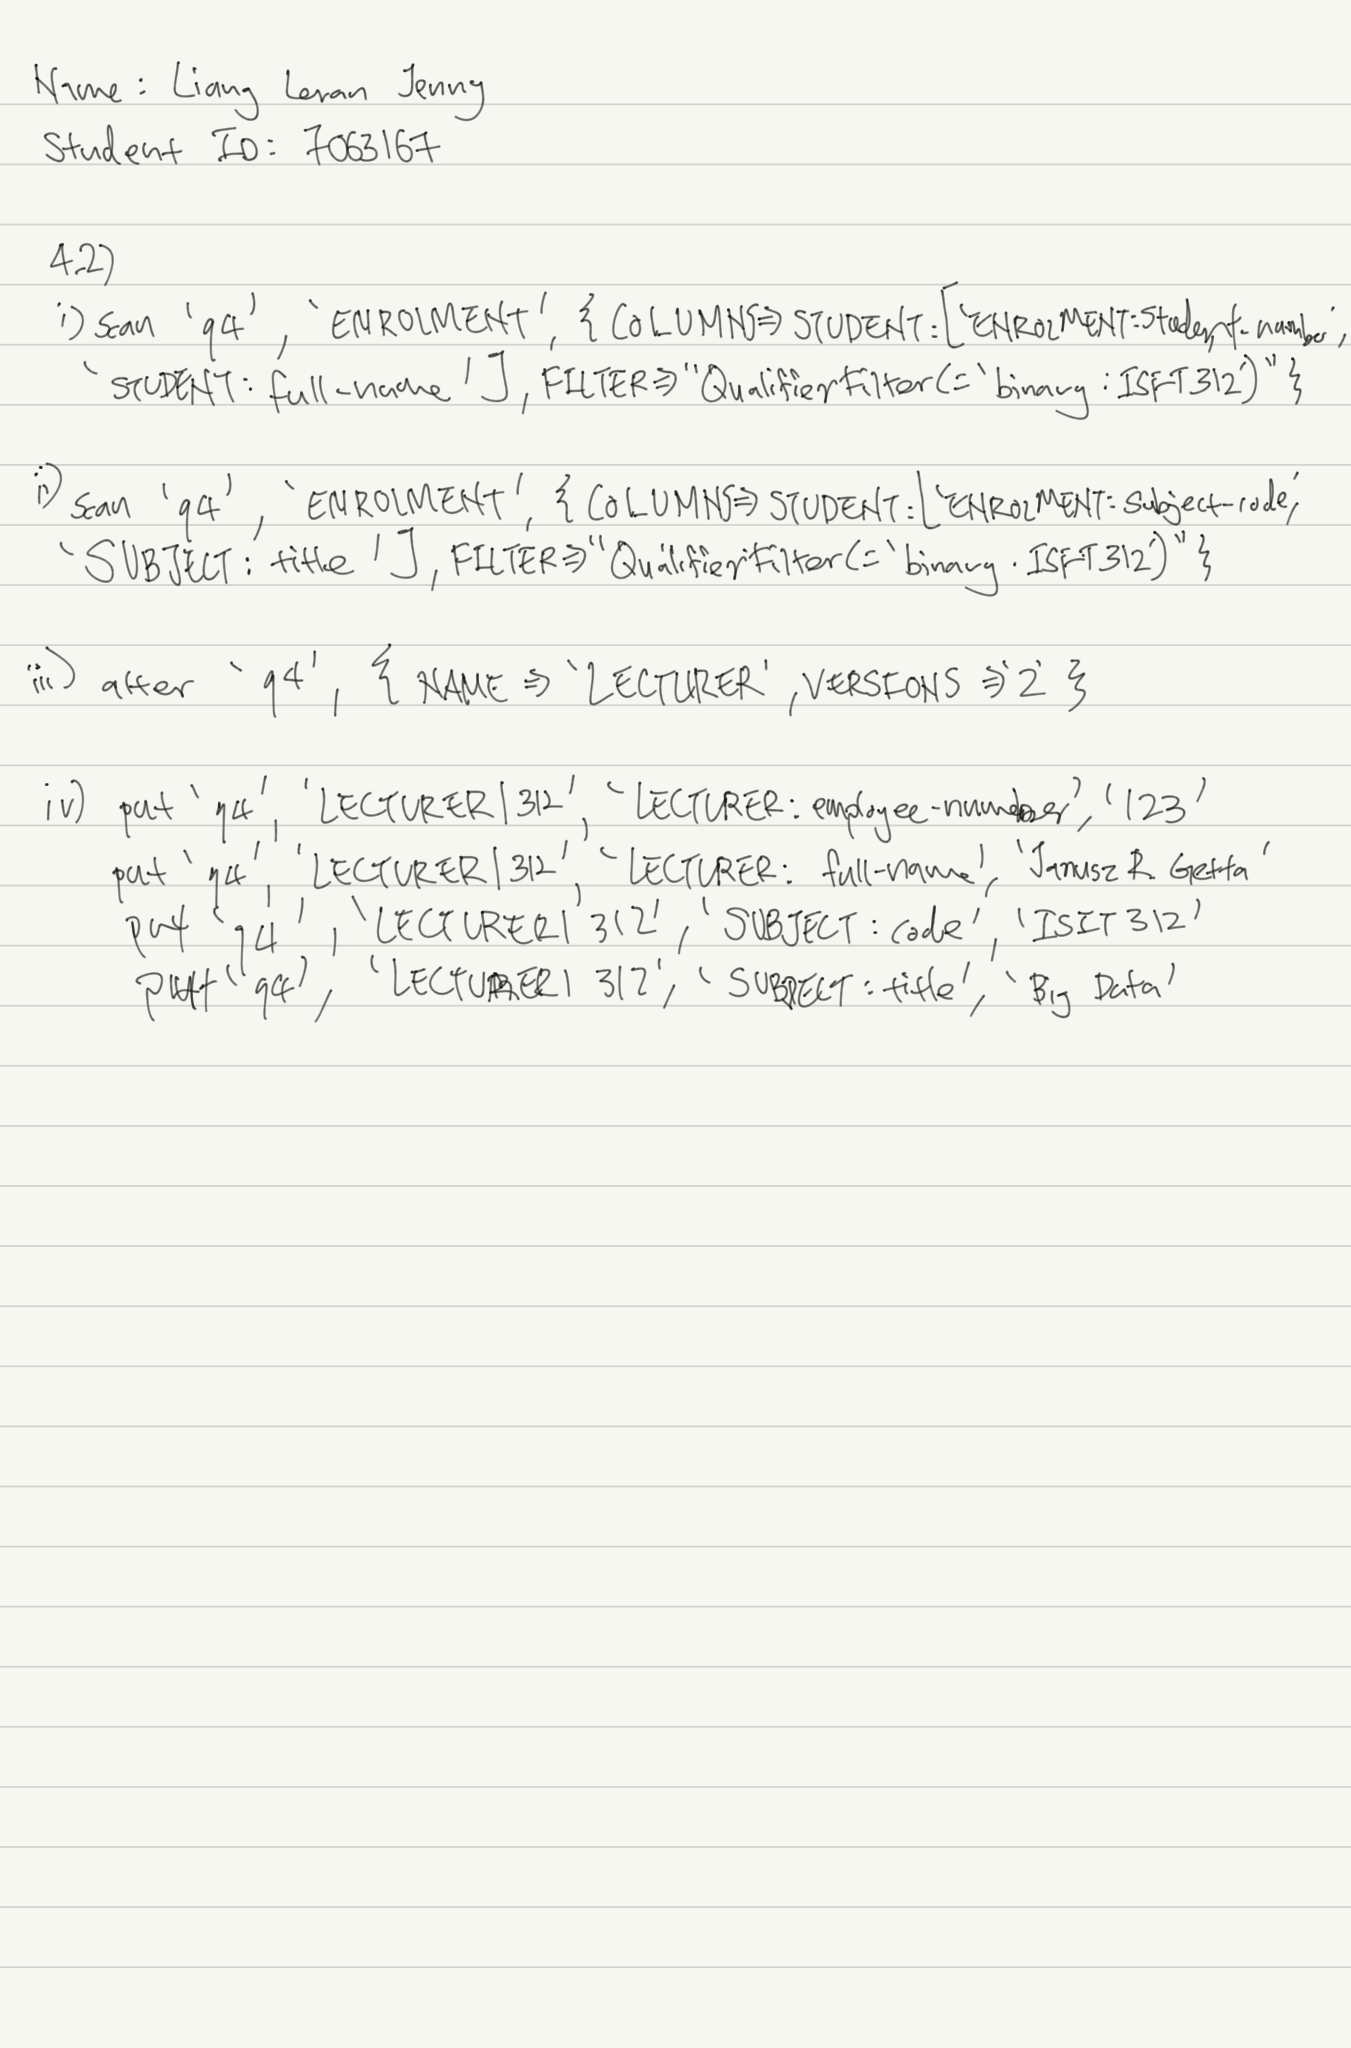 Name : Liang Leran Jenny
Student ID: 7063167
4.2)
i) Scan 'q4', 'ENROLMENT', { COLUMNS=> STUDENT:['ENROLMENT:Student-number',
'STUDENT: full-name'], FILTER=>"QualifierFilter(='binary:ISFT312')"}
ii) Scan 'q4', 'ENROLMENT', { COLUMNS=> STUDENT:['ENROLMENT:Subject-code',
'SUBJECT: title'], FILTER=>"QualifierFilter(='binary.ISFT312')"}
iii) alter 'q4', { NAME => 'LECTURER', VERSIONS => '2' }
iv) put 'q4', 'LECTURER|312', 'LECTURER: employee-number', '123'
put 'q4', 'LECTURER|312', 'LECTURER: full-name', 'Janusz R. Getta'
put 'q4', 'LECTURER|312', 'SUBJECT: code', 'ISIT312'
put 'q4', 'LECTURER|312', 'SUBJECT: title', 'Big Data'